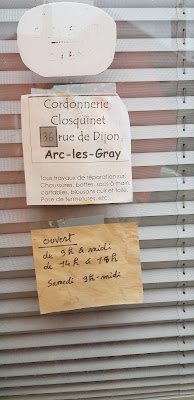 Cordonnerie
Closquinet
36 rue de Dijon
Arc-les-Gray
Tous travaux de réparation sur:
Chaussures, bottes, sacs à main,
cartables, blousons cuir et toile.
Pose de fermetures, etc...
ouvert
de 9h à midi
de 14h à 18h
Samedi 9h-midi